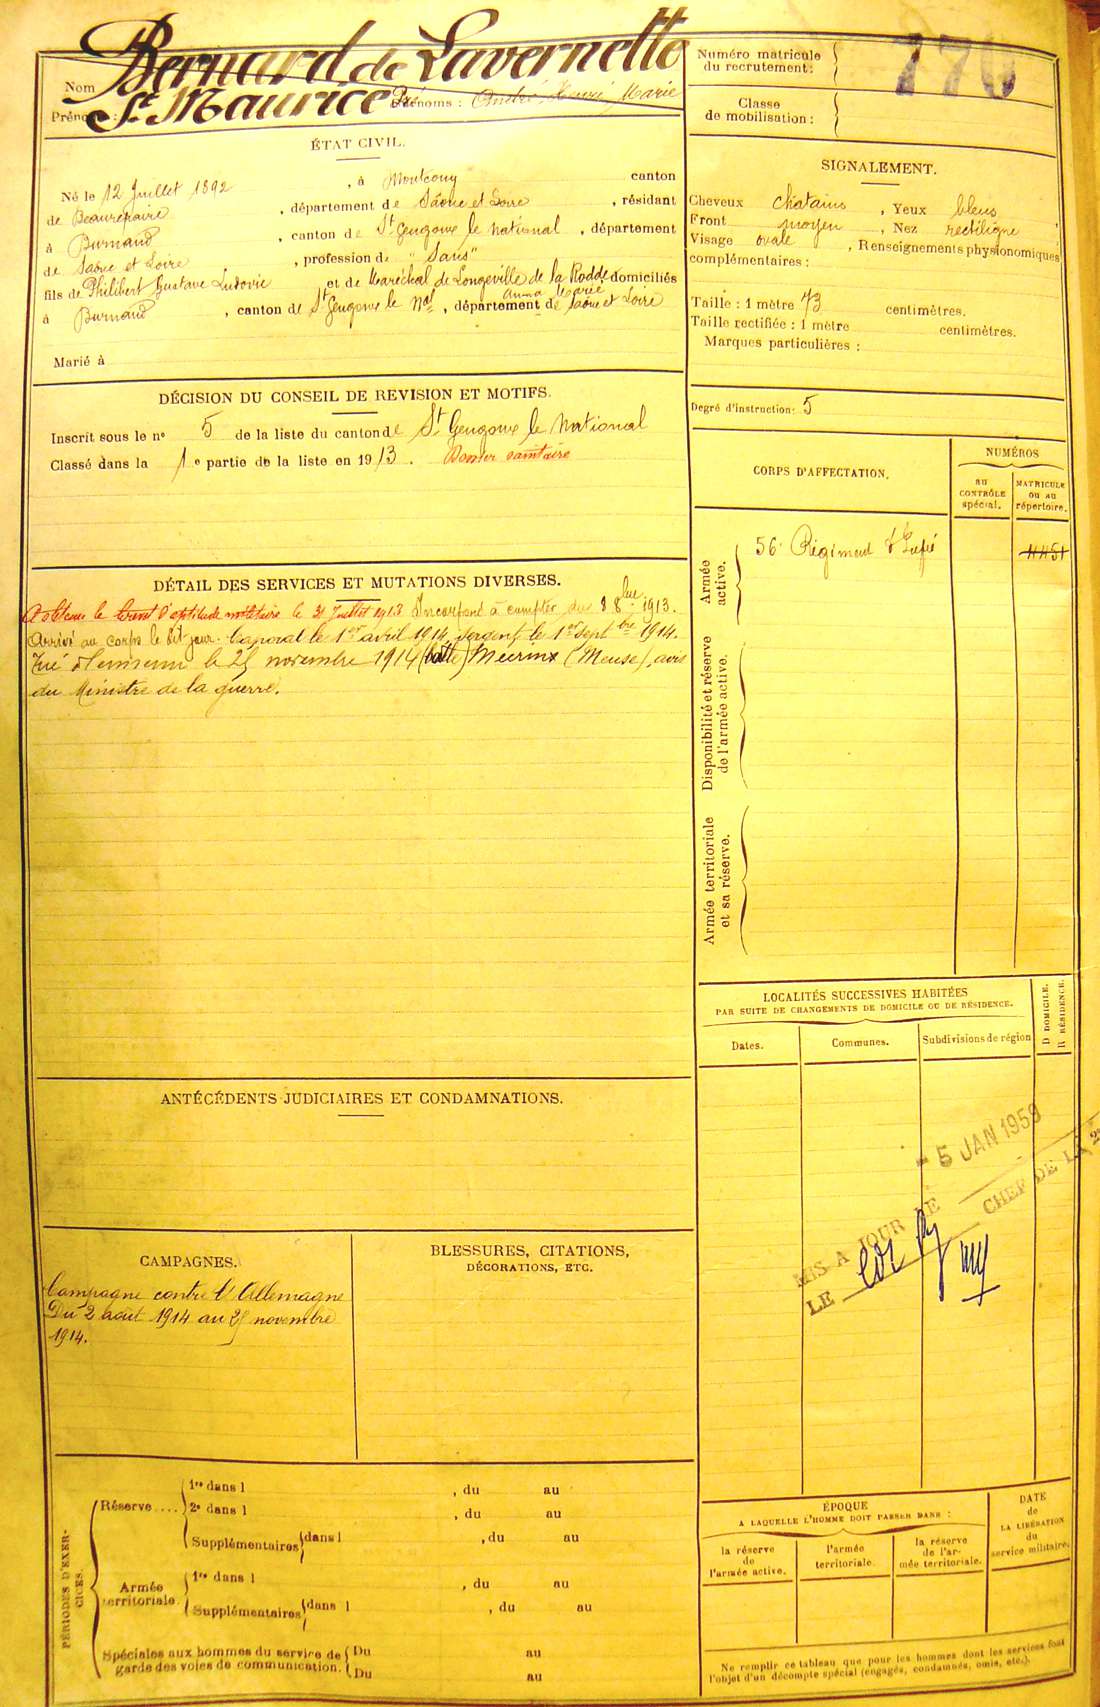 Bernard de Lavernette
Nom
St Maurice
Prénoms : André Henri Marie
ÉTAT CIVIL.
Né le 12 Juillet 1892, à Montcony canton
de Beaurepaire, département de Saône et Loire, résidant
à Burnand, canton de St Gengoux le national, département
de Saône et Loire, profession de "Sans"
fils de Philibert Gustave Ludovic et de Maréchal de Longeville de la Rodde domiciliés
Anna Marie
à Burnand, canton de St Gengoux le Nal, département de Saône et Loire
Marié à
DÉCISION DU CONSEIL DE REVISION ET MOTIFS.
Inscrit sous le no 5 de la liste du canton de St Gengoux le National
Classé dans la 1e partie de la liste en 1913. Dossier sanitaire
DÉTAIL DES SERVICES ET MUTATIONS DIVERSES.
A obtenu le brevet d'aptitude militaire le 31 Juillet 1913 Incorporé à compter du 8 8bre 1913.
Arrivé au corps le dit jour. Caporal le 1er avril 1914. Sergent le 1er septbre 1914.
Tué à l'ennemi le 25 novembre 1914 (batlle) Mécrin (Meuse), avis
du Ministre de la guerre.
ANTÉCÉDENTS JUDICIAIRES ET CONDAMNATIONS.
CAMPAGNES.
Campagne contre l'Allemagne
Du 2 août 1914 au 25 novembre
1914.
BLESSURES, CITATIONS,
DÉCORATIONS, ETC.
PÉRIODES D'EXERCICES.
Réserve....
1re dans l , du au
2e dans l , du au
Supplémentaires dans l , du au
Armée territoriale.
1re dans l , du au
Supplémentaires dans l , du au
Spéciales aux hommes du service de Du au
garde des voies de communication. Du au
Numéro matricule
du recrutement : 770
Classe
de mobilisation :
SIGNALEMENT.
Cheveux chatains, Yeux bleus,
Front moyen, Nez rectiligne,
Visage ovale, Renseignements physionomiques
complémentaires :
Taille : 1 mètre 73 centimètres.
Taille rectifiée : 1 mètre centimètres.
Marques particulières :
Degré d'instruction : 5
CORPS D'AFFECTATION.
NUMÉROS
au
CONTRÔLE
spécial.
MATRICULE
ou au
répertoire.
Armée
active.
56e Régiment d'Infie
4451
Disponibilité et réserve
de l'armée active.
Armée territoriale
et sa réserve.
LOCALITÉS SUCCESSIVES HABITÉES
PAR SUITE DE CHANGEMENTS DE DOMICILE OU DE RÉSIDENCE.
Dates.
Communes.
Subdivisions de région
D DOMICILE.
R RÉSIDENCE.
- 5 JAN 1959
MIS A JOUR LE
LE
CHEF DE LA 2e
ÉPOQUE
A LAQUELLE L'HOMME DOIT PASSER DANS :
la réserve
de
l'armée active.
l'armée
territoriale.
la réserve
de l'ar-
mée territoriale.
DATE
de
LA LIBÉRATION
du
service militaire.
Ne remplir ce tableau que pour les hommes dont les services font
l'objet d'un décompte spécial (engagés, condamnés, omis, etc.).